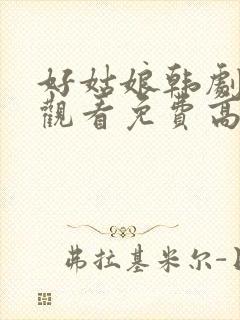 好姑娘韩劇
觀看免費高
弗拉基米尔-